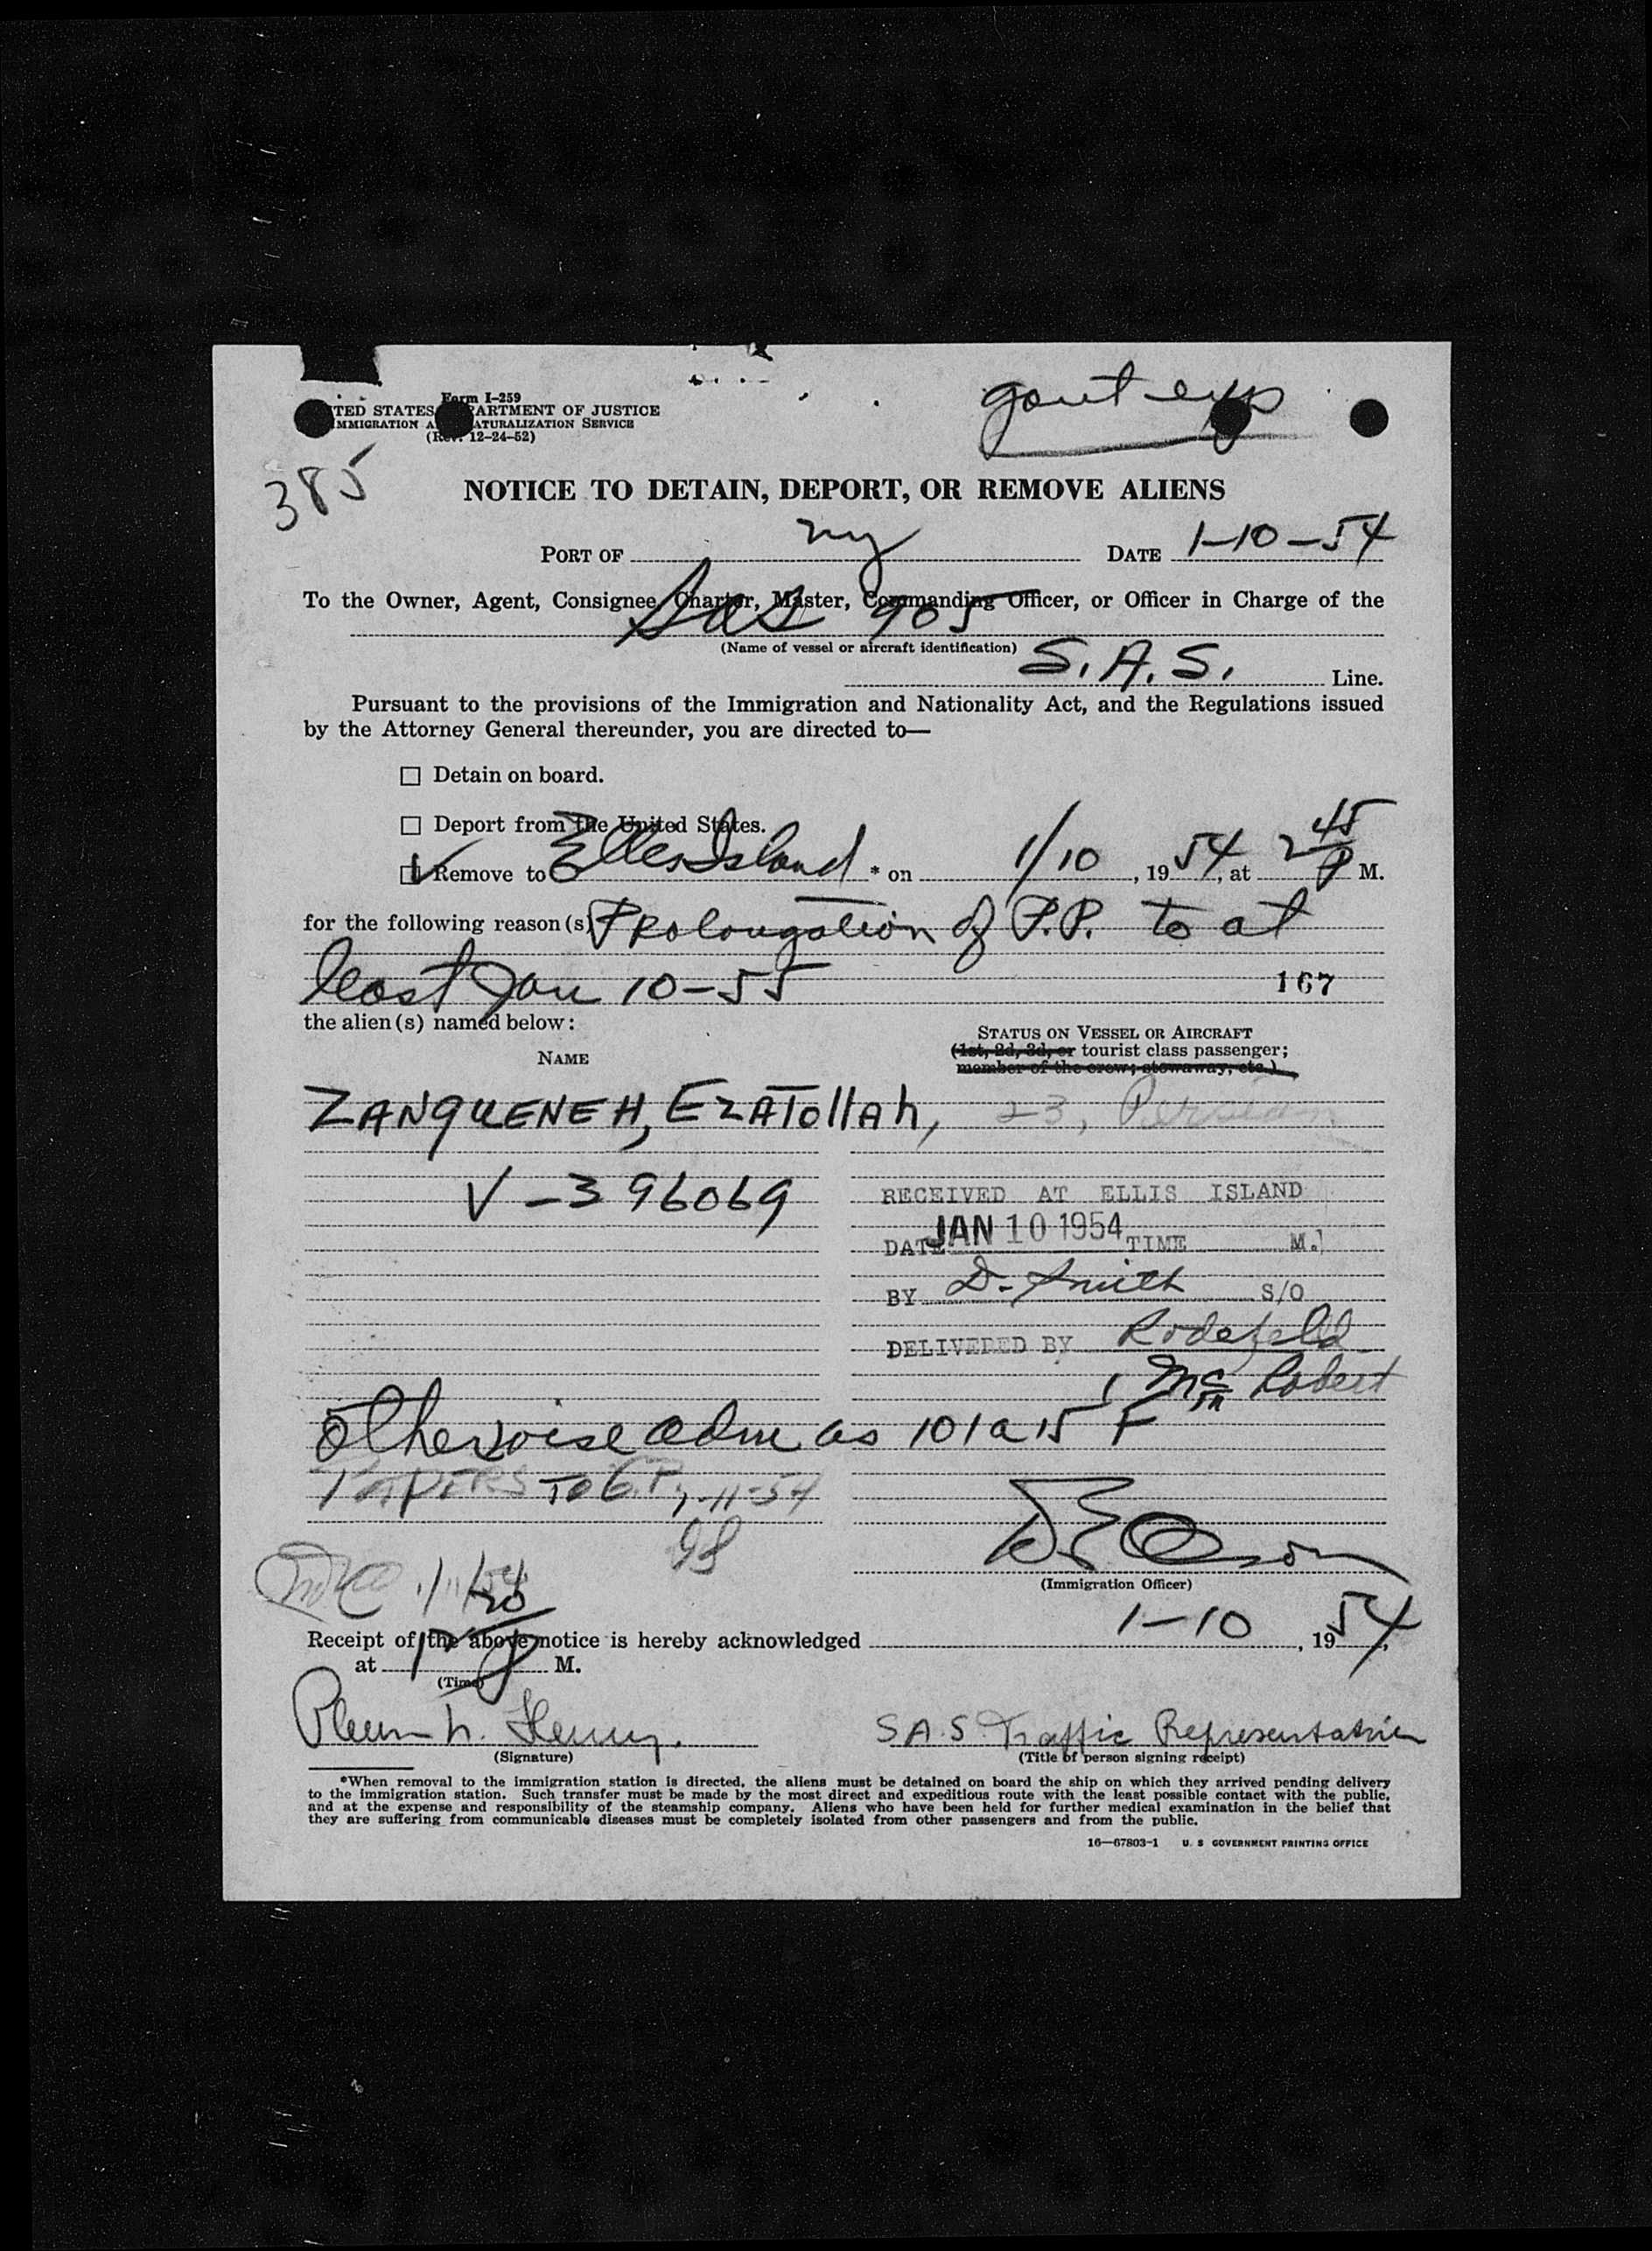 Form I-259
TED STATES PARTMENT OF JUSTICE
MMIGRATION A ATURALIZATION SERVICE
(Rev. 12-24-52)
govt exp
385
NOTICE TO DETAIN, DEPORT, OR REMOVE ALIENS
PORT OF ny DATE 1-10-54
To the Owner, Agent, Consignee, Charter, Master, Commanding Officer, or Officer in Charge of the
SAS 905
(Name of vessel or aircraft identification)
S.A.S. Line.
Pursuant to the provisions of the Immigration and Nationality Act, and the Regulations issued
by the Attorney General thereunder, you are directed to—
☐ Detain on board.
☐ Deport from the United States.
☑ Remove to Ellis Island * on 1/10, 1954, at 2 45 P M.
for the following reason(s) Prolongation of P.P. to at
least Jan 10-55
167
the alien(s) named below:
NAME
STATUS ON VESSEL OR AIRCRAFT
(1st, 2d, 3d, or tourist class passenger;
member of the crew; stowaway, etc.)
ZANQUENEH, EzATollAh, 23, Persian
V-396069
RECEIVED AT ELLIS ISLAND
DATE JAN 10 1954 TIME M.
BY D. Smith S/O
DELIVERED BY Rodefeld
Robert
Otherwise adm as 101 a 15 F
PAPERS TO 1-11-54
1/11/54
(Immigration Officer)
Receipt of the above notice is hereby acknowledged 1-10, 1954,
at 12 20 P M.
(Time)
SAS Traffic Representative
(Signature)
(Title of person signing receipt)
*When removal to the immigration station is directed, the aliens must be detained on board the ship on which they arrived pending delivery
to the immigration station. Such transfer must be made by the most direct and expeditious route with the least possible contact with the public,
and at the expense and responsibility of the steamship company. Aliens who have been held for further medical examination in the belief that
they are suffering from communicable diseases must be completely isolated from other passengers and from the public.
16—67803-1 U. S GOVERNMENT PRINTING OFFICE